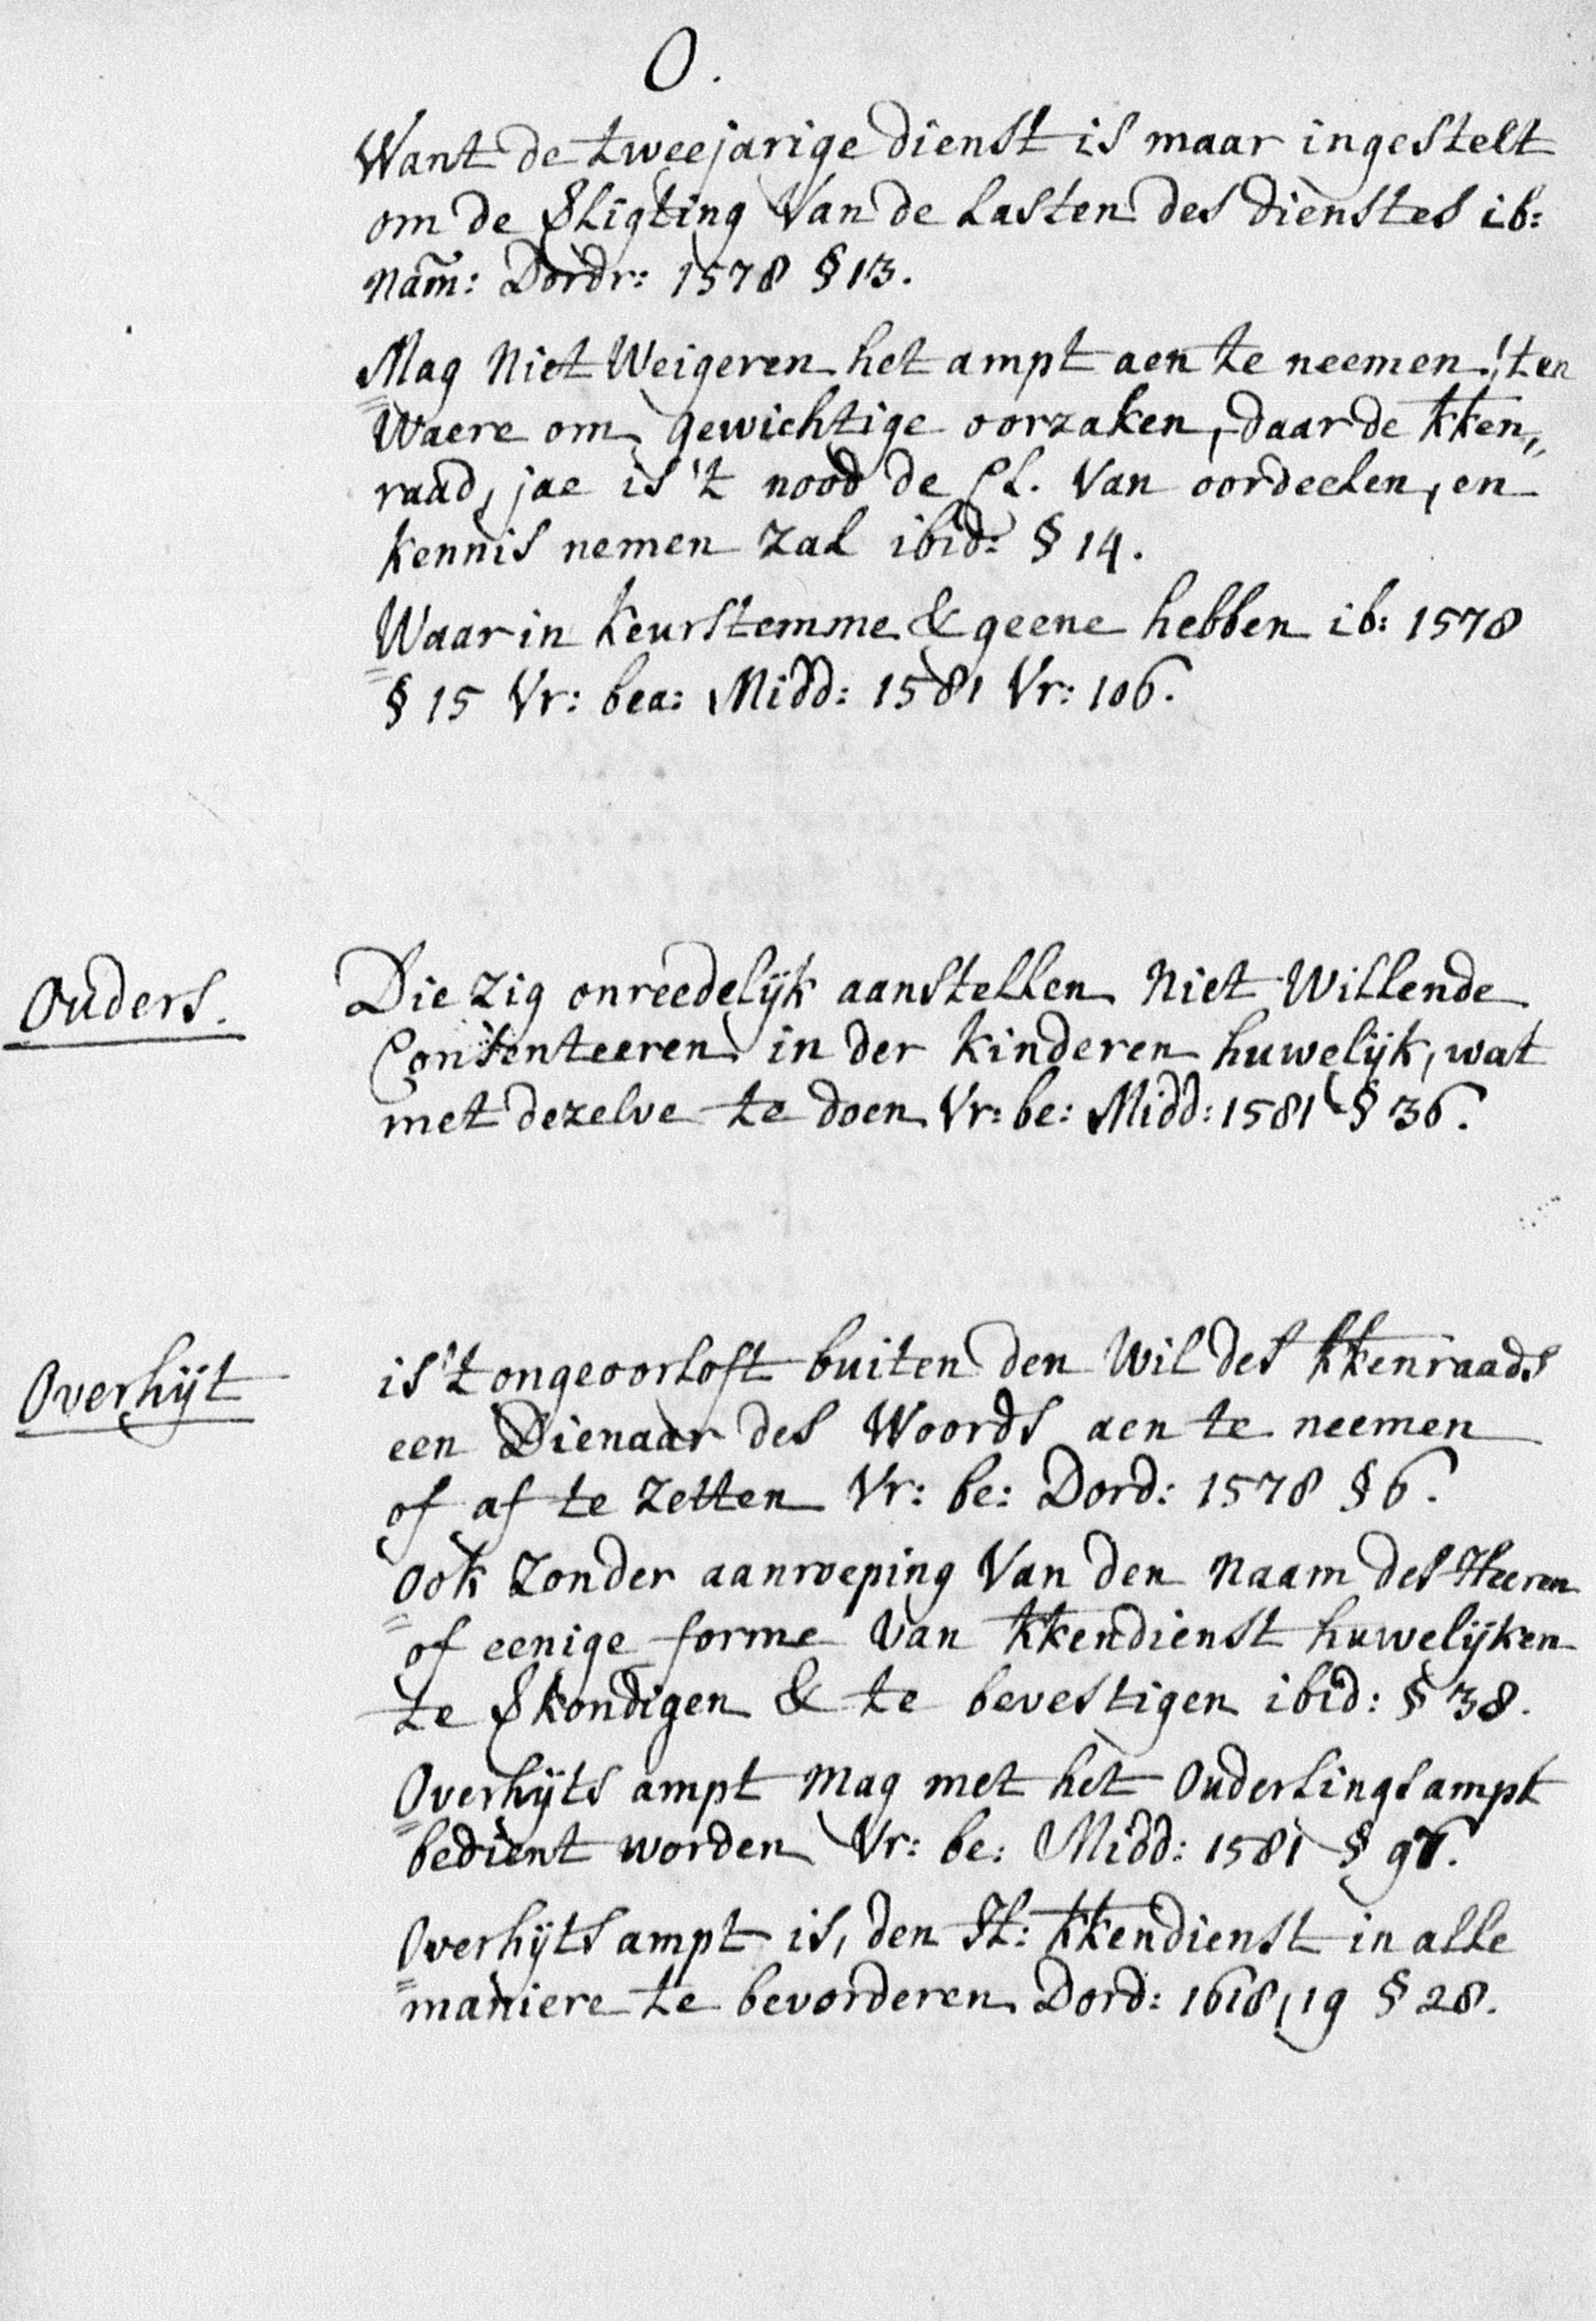 O.
Want de tweejarige dienst is maar ingestelt
om de ꝟligting Van de Lasten des dienstes ib:
nam̃: Dordr: 1578 § 13.
Mag Niet Weigeren het ampt aen te neemen 't en
Waere om gewichtige oorzaken, daar de kken„
raad, jae is 't nood de Cl. Van oordeelen, en
kennis nemen zal ibid: § 14.
Waar in keurstemme & geene hebben ib: 1578
§ 15 Vr: bea: Midd: 1581 Vr: 106.
Ouders. Die zig onreedelijk aanstellen Niet Willende
Consenteeren in der kinderen huwelijk, wat
met dezelve te doen Vr: be: Midd: 1581 § 36.
Overhijt is 't ongeoorloft buiten den Wil des kkenraads
een Dienaar des Woords aen te neemen
of af te zetten Vr: be: Dord: 1578 § 6.
Ook zonder aanroeping Van den Naam des Heeren
of eenige forme Van kkendienst huwelijken
te ꝟkondigen & te bevestigen ibid: § 38.
Overhijts ampt Mag met het Ouderlings ampt
bedient worden Vr: be: Midd: 1581 §
Overhijts ampt is, den H: kkendienst in alle
maniere te bevorderen Dord: 1618, 19 § 28.